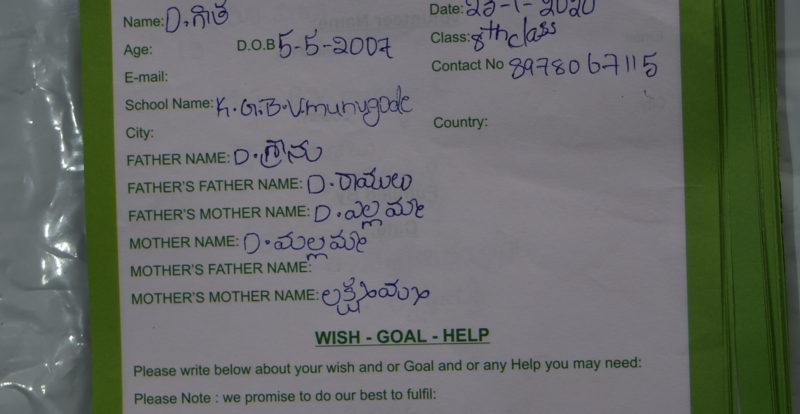 Name: D. గీత
Date: 23-1-2020
Age: D.O.B 5-5-2007
Class: 8th class
E-mail:
Contact No 8978067115
School Name: K.G.B.V munugode
City: Country:
FATHER NAME: D. శ్రీను
FATHER'S FATHER NAME: D. రాములు
FATHER'S MOTHER NAME: D. ఎల్లమ్మ
MOTHER NAME: D. మల్లమ్మ
MOTHER'S FATHER NAME:
MOTHER'S MOTHER NAME: లక్ష్మమ్మ
WISH - GOAL - HELP
Please write below about your wish and or Goal and or any Help you may need:
Please Note : we promise to do our best to fulfil: